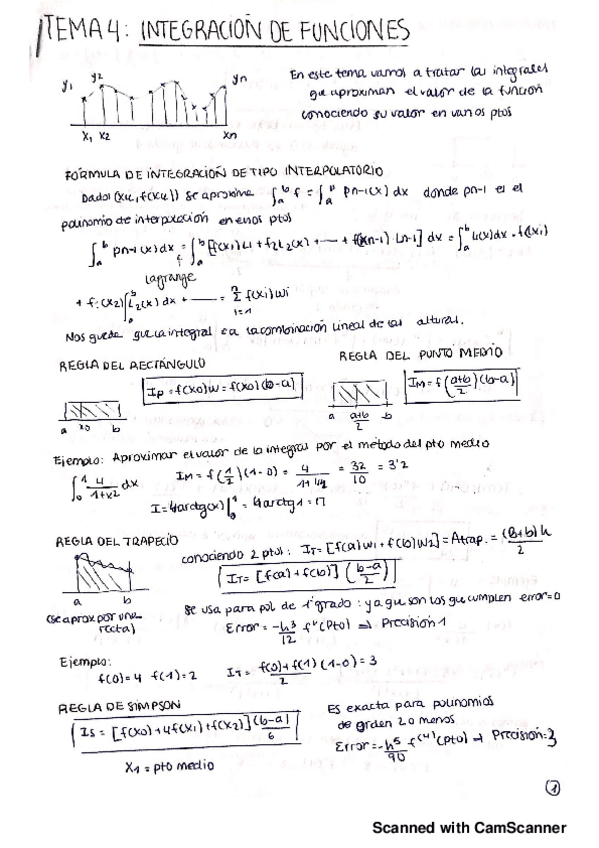 TEMA 4: INTEGRACIÓN DE FUNCIONES
y1 y2 yn
x1 x2 xn
En este tema vamos a tratar las integrales
que aproximan el valor de la función
conociendo su valor en varios ptos
FÓRMULA DE INTEGRACIÓN DE TIPO INTERPOLATORIO
Dados (xk, f(xk)) se aproxima ∫_a^b f = ∫_a^b pn-1(x) dx donde pn-1 es el
polinomio de interpolación en esos ptos
∫_a^b pn-1(x) dx = ∫_a^b [f(x1) L1 + f2 L2(x) + --- + f(xn-1) Ln-1] dx = ∫_a^b L1(x) dx · f(x1)
Lagrange
+ f(x2) ∫_a^b L2(x) dx + --- = Σ_{i=1}^n f(xi) wi
Nos queda que la integral es la combinación lineal de las alturas.
REGLA DEL RECTÁNGULO
IR = f(x0) w = f(x0) (b-a)
a x0 b
REGLA DEL PUNTO MEDIO
IM = f((a+b)/2) (b-a)
a (a+b)/2 b
Ejemplo: Aproximar el valor de la integral por el método del pto medio
∫_0^1 4/(1+x2) dx IM = f(1/2) (1-0) = 4/(1+1/4) = 32/10 = 3'2
I = 4 arctg(x)|_0^1 = 4 arctg 1 = π
REGLA DEL TRAPECIO
conociendo 2 ptos: IT = [f(a) w1 + f(b) w2] = Atrap. = (B+b) h / 2
IT = [f(a) + f(b)] ((b-a)/2)
a b
(se aprox por una
recta)
Se usa para pol de 1er grado: ya que son los que cumplen error=0
Error = -h^3/12 f''(pto) ⇒ Precisión 1
Ejemplo:
f(0)=4 f(1)=2 IT = (f(0)+f(1))/2 (1-0) = 3
REGLA DE SIMPSON
IS = [f(x0) + 4f(x1) + f(x2)] (b-a)/6
x1 = pto medio
Es exacta para polinomios
de grado 2 o menos
Error = -h^5/90 f^(4)(pto) ⇒ Precisión=3
1
Scanned with CamScanner